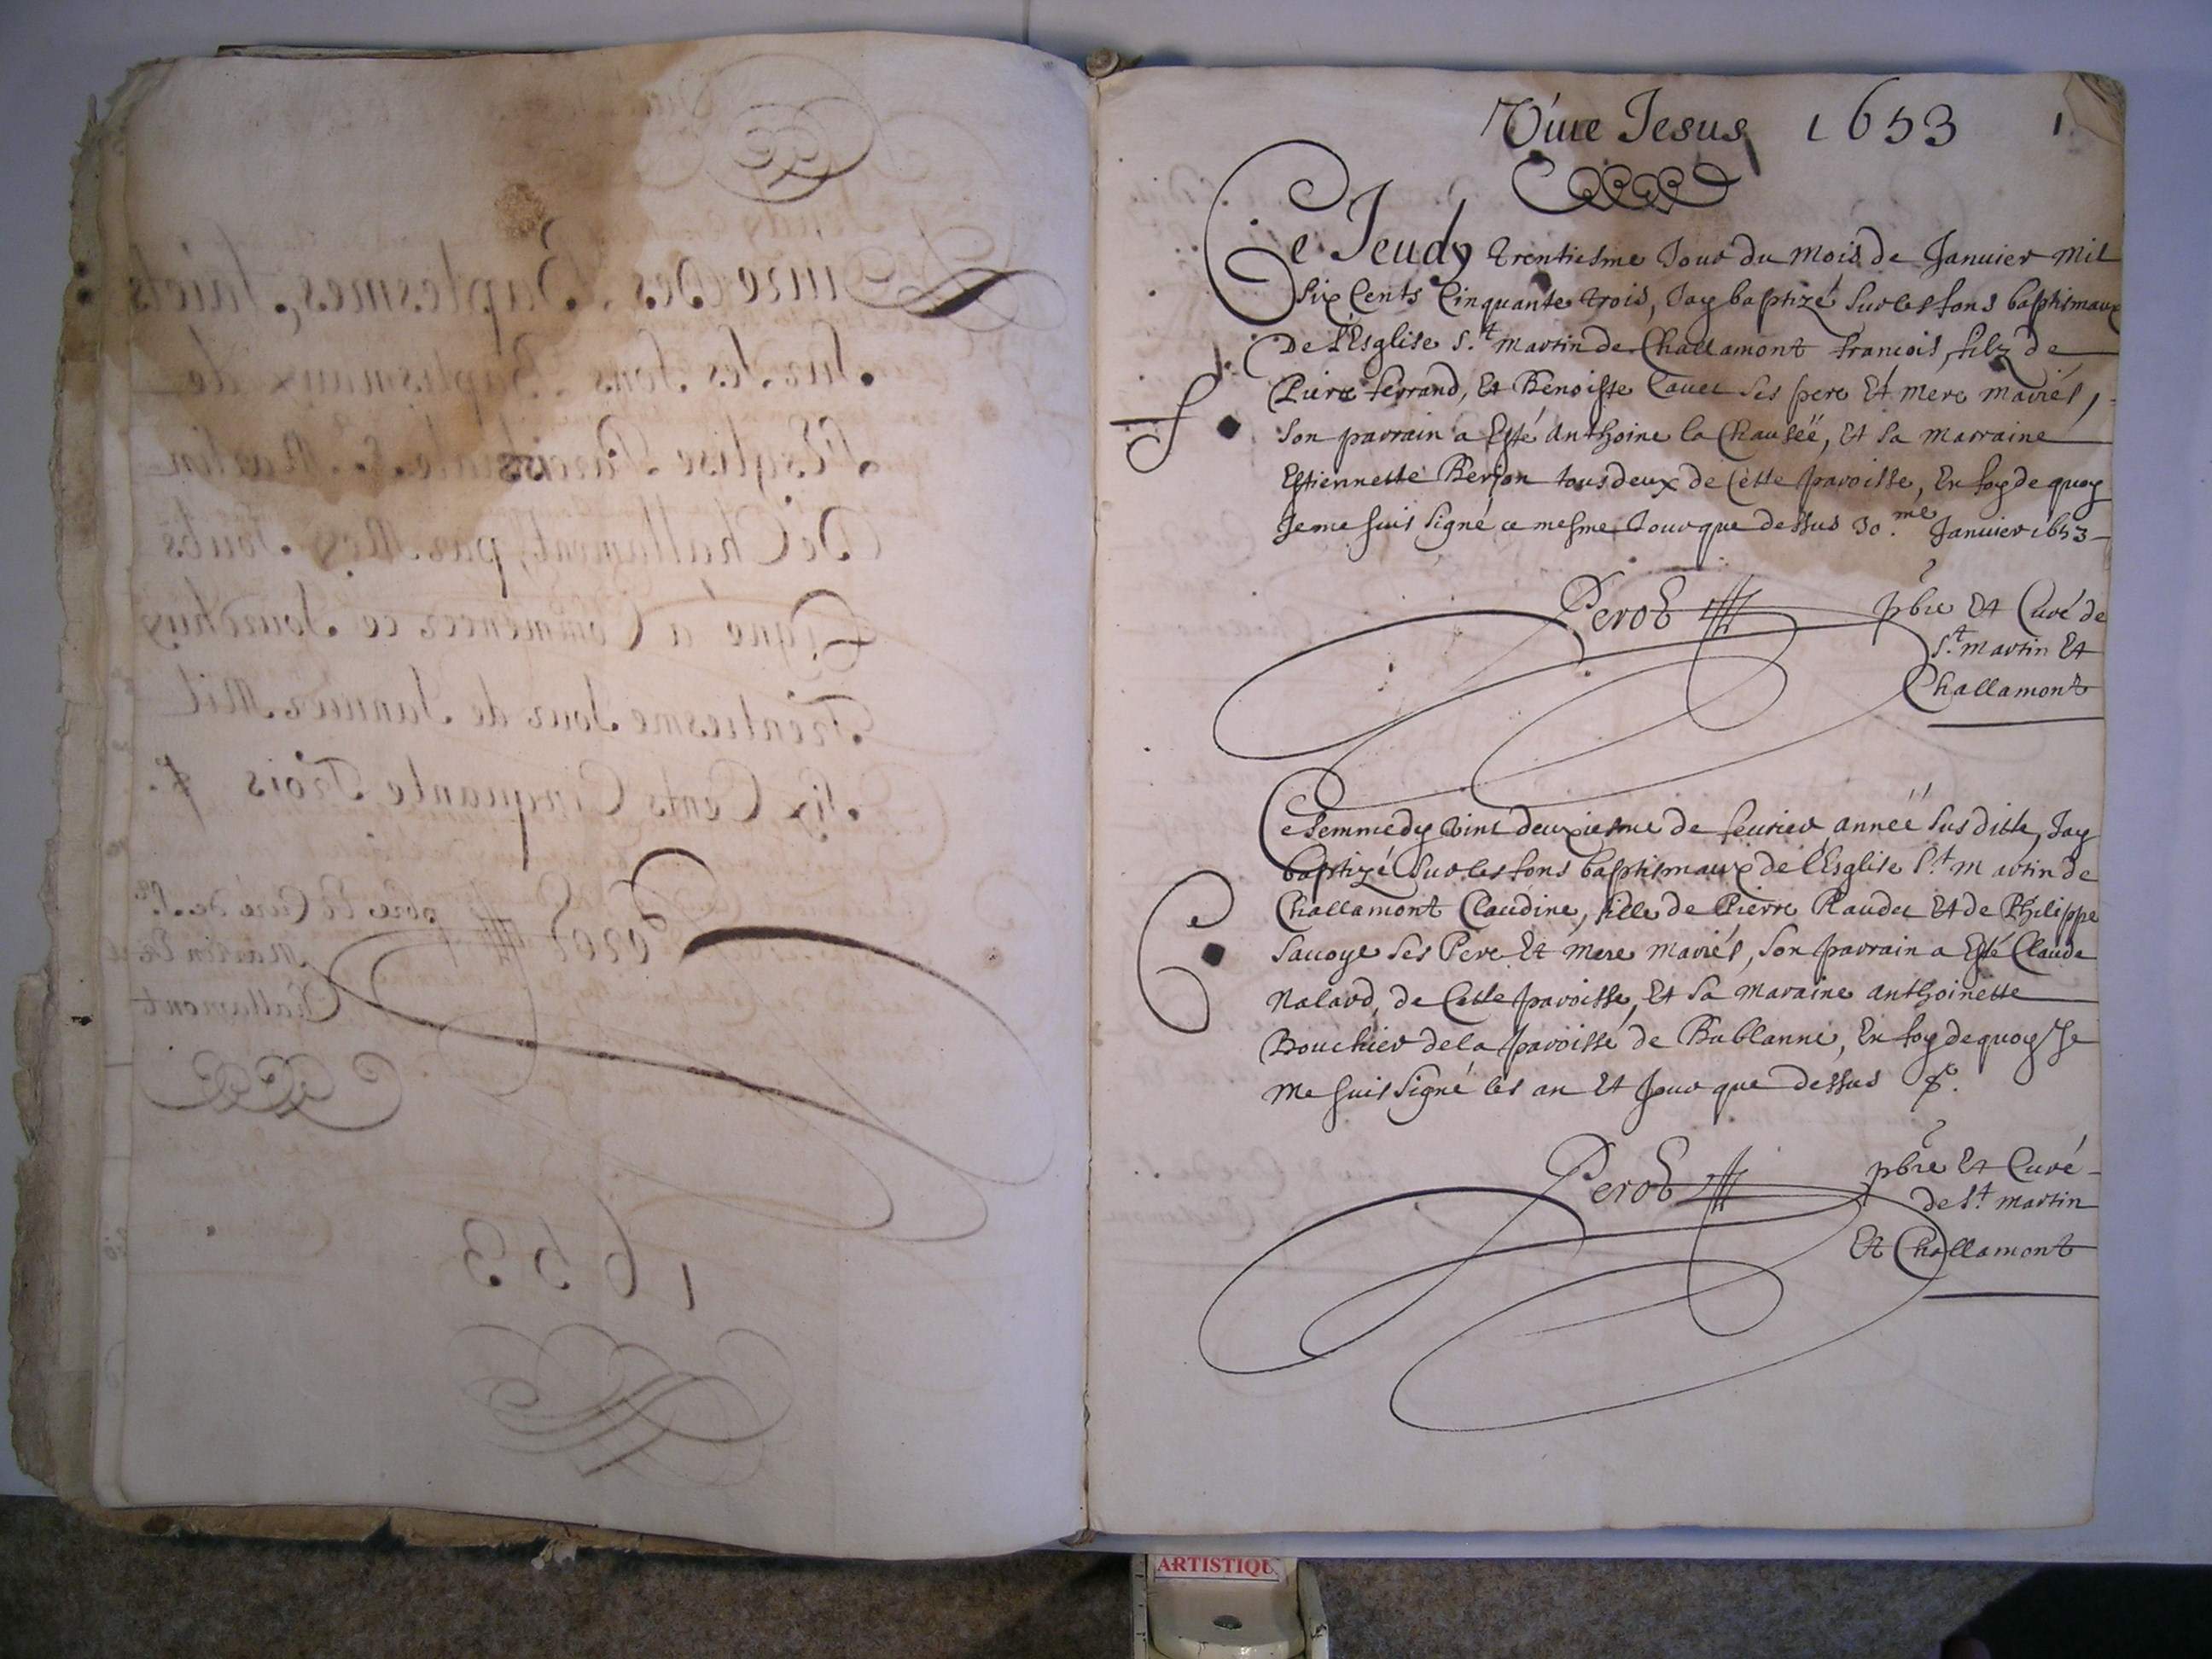 Liure des Baptesmes, faicts
Sur les fons Baptismaux de
l'Esglise Parochialle St. Martin
De Challamont, par Moy Soubs
Signé a Commencer ce Jourdhuy
Trentiesme Jour de Januier Mil
Six Cents Cinquante Trois
Perod pbre Et Curé de St.
Martin Et de
Challamont
1653
Viue Jesus 1653 1
Ce Jeudy trentiesme Jour du mois de Januier mil
Six Cents Cinquante trois, Jay baptizé Sur les fons baptismaux
De l'Esglise S.t martin de Challamont francois, filz de
Pierre ferrand, Et Benoiste Cauet Ses pere Et mere mariés,
f
Son parrain a Esté Anthoine la Chauseë, Et Sa marraine
Estiennette Berjon tous deux de Cette paroisse, En foy de quoy
Je me suis Signé ce mesme Jour que dessus 30.me Januier 1653
Perod pbre Et Curé de
S.t martin Et
Challamont
Ce Semmedy vint deuxiesme de feurier anneë Susditte, Jay
baptizé Sur les fons baptismaux de l'Esglise S.t martin de
Challamont Claudine, fille de Pierre Raudet Et de Philippe
C
Sauoye Ses Pere Et mere mariés, Son parrain a Esté Claude
Nalard, de Cette paroisse, Et Sa maraine anthoinette
Bouchier de la paroisse de Bublanne, En foy de quoy Je
me suis Signé les an Et Jour que dessus
Perod pbre Et Curé
de S.t martin
Et Challamont
ARTISTIQU